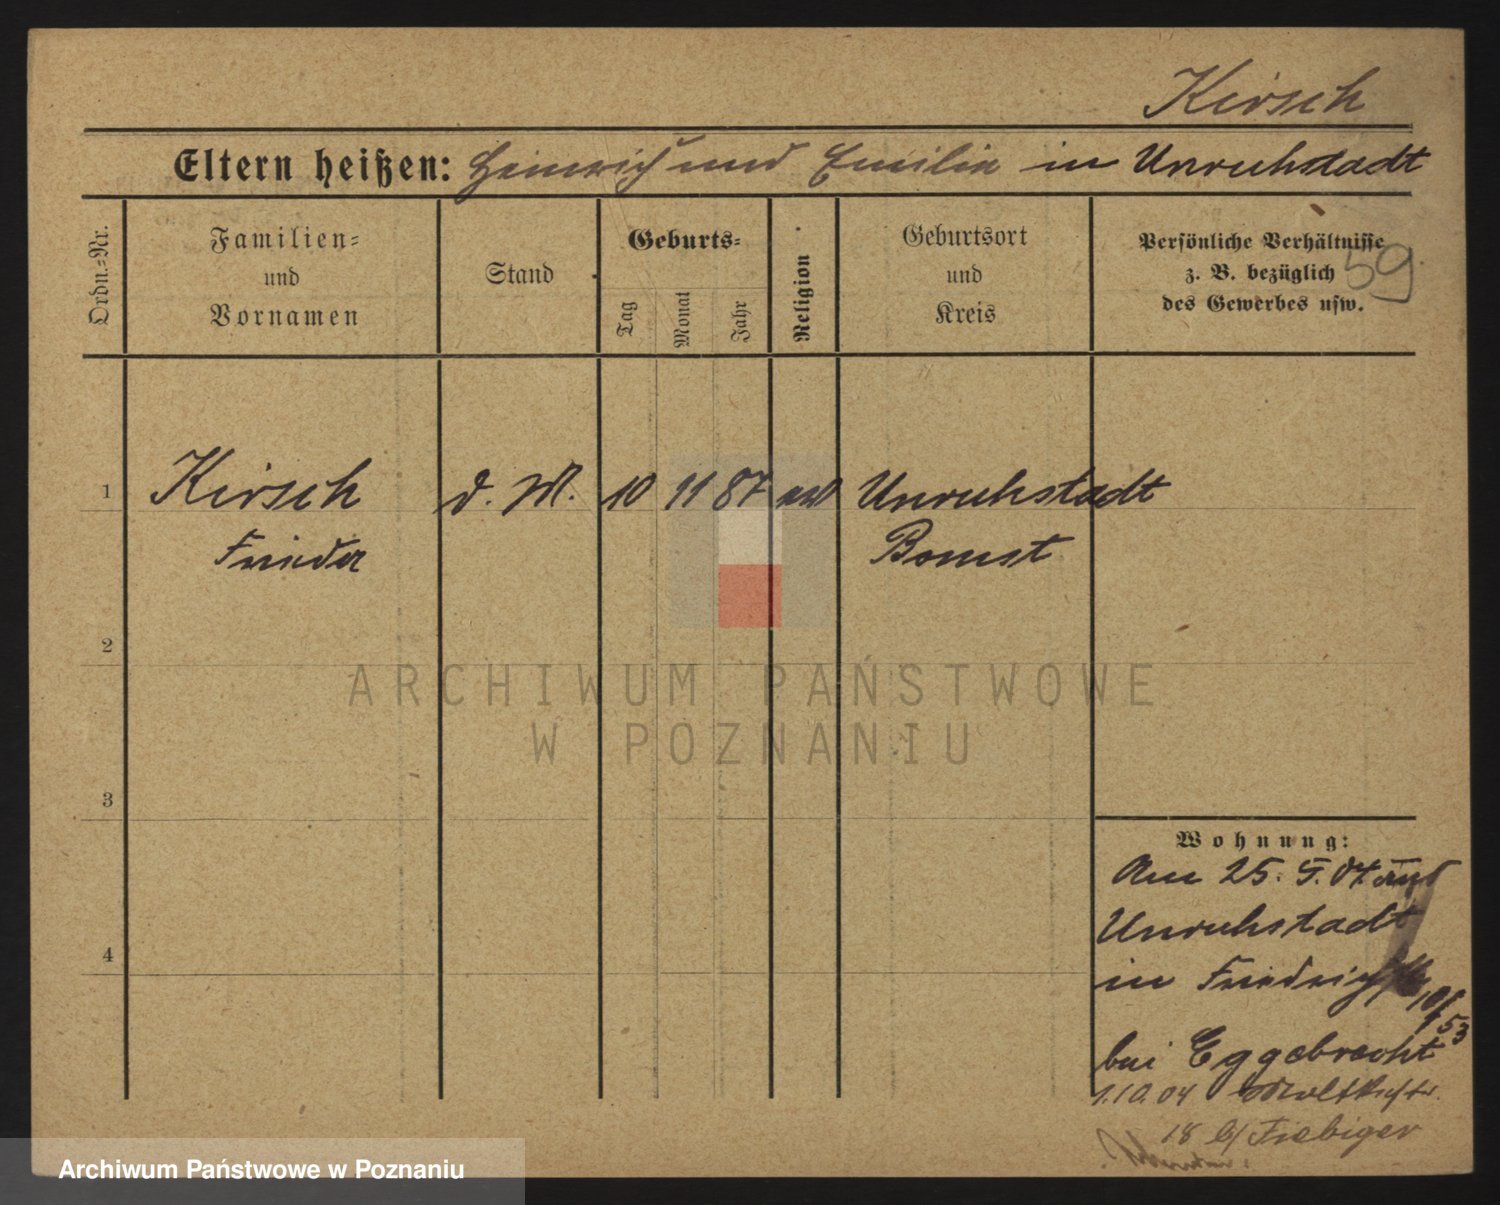 Kirsch
Eltern heißen: Heinrich und Emilie in Unruhstadt
Ordn.=Nr.
Familien=
und
Vornamen
Stand
Geburts=
Tag
Monat
Jahr
Religion
Geburtsort
und
Kreis
Persönliche Verhältnisse
z. B. bezüglich
des Gewerbes usw.
59
1 Kirsch d. M. 10 11 87 Unruhstadt
Frieda Bomst
2
3
4
ARCHIWUM PAŃSTWOWE
W POZNANIU
Wohnung:
Am 25. 5. 07
Unruhstadt
in
bei Eggebrecht
1.10.04
18 b/ Fiebiger
Archiwum Państwowe w Poznaniu